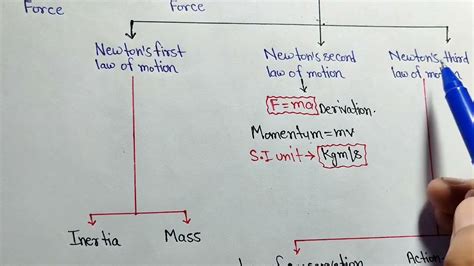 Force
Force
Newton's first
law of motion
Newton's second
law of motion
Newton's third
law of motion
F = ma Derivation.
Momentum = mv
S.I unit → Kgm/s
Inertia
Mass
Action